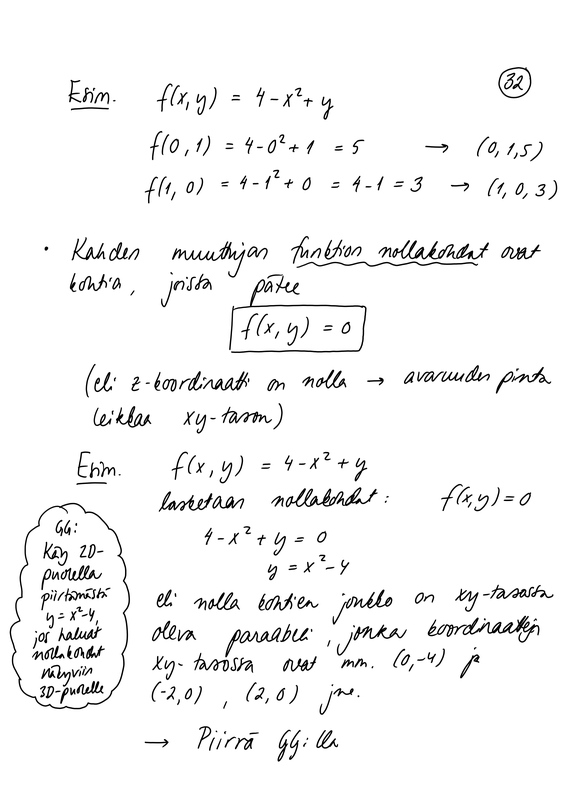 32
Esim. f(x,y) = 4-x²+y
f(0,1) = 4-0²+1 = 5 → (0,1,5)
f(1,0) = 4-1²+0 = 4-1 = 3 → (1,0,3)
• Kahden muuttujan funktion nollakohdat ovat
kohtia, joissa pätee
f(x,y) = 0
(eli z-koordinaatti on nolla → avaruuden pinta
leikkaa xy-tason)
Esim. f(x,y) = 4-x²+y
lasketaan nollakohdat: f(x,y)=0
4-x²+y = 0
y = x²-4
eli nolla kohtien joukko on xy-tasossa
oleva paraabeli, jonka koordinaatteja
xy-tasossa ovat mm. (0,-4) ja
(-2,0), (2,0) jne.
→ Piirrä GG:lla
GG:
Käy 2D-
puolella
piirtämässä
y=x²-4,
jos haluat
nollakohdat
näkyviin
3D-puolelle